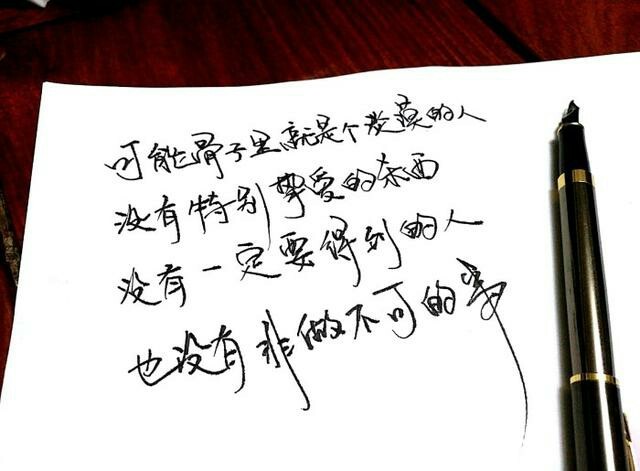 可能骨子里就是个凉薄的人
没有特别挚爱的东西
没有一定要得到的人
也没有非做不可的事